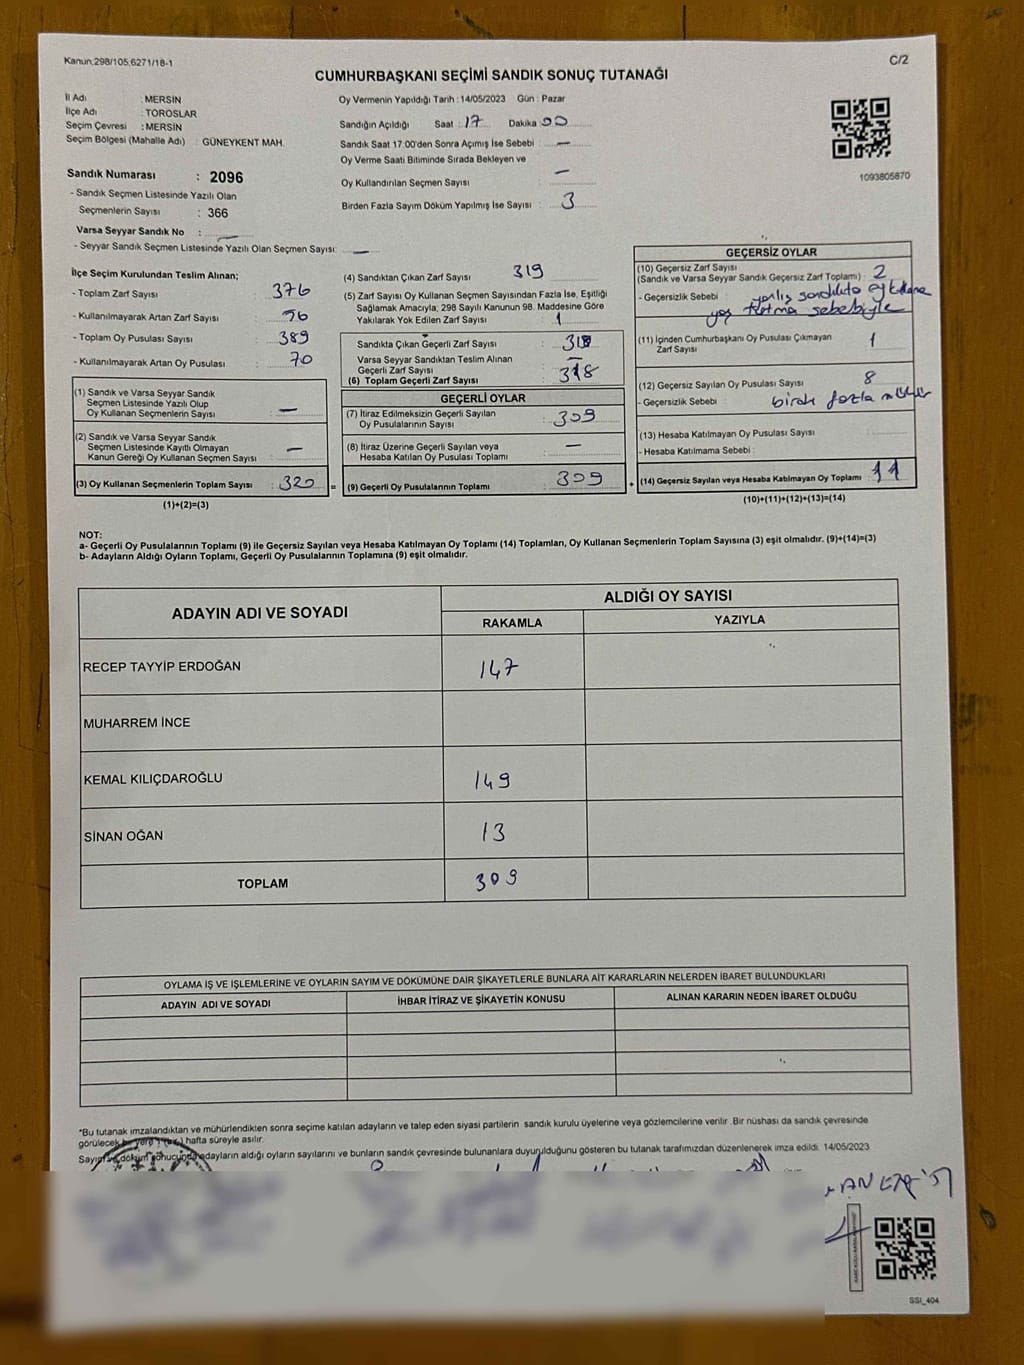 Kanun:298/105,6271/18-1
C/2
CUMHURBAŞKANI SEÇİMİ SANDIK SONUÇ TUTANAĞI
İl Adı : MERSİN
İlçe Adı : TOROSLAR
Seçim Çevresi : MERSİN
Seçim Bölgesi (Mahalle Adı) : GÜNEYKENT MAH.
Oy Vermenin Yapıldığı Tarih : 14/05/2023 Gün : Pazar
Sandığın Açıldığı Saat : 17 Dakika : 00
Sandık Saat 17:00'den Sonra Açımış İse Sebebi : —
Oy Verme Saati Bitiminde Sırada Bekleyen ve
Oy Kullandırılan Seçmen Sayısı : —
Birden Fazla Sayım Döküm Yapılmış İse Sayısı : 3
1093805870
Sandık Numarası : 2096
- Sandık Seçmen Listesinde Yazılı Olan
Seçmenlerin Sayısı : 366
Varsa Seyyar Sandık No : —
- Seyyar Sandık Seçmen Listesinde Yazılı Olan Seçmen Sayısı: —
İlçe Seçim Kurulundan Teslim Alınan;
- Toplam Zarf Sayısı : 376
- Kullanılmayarak Artan Zarf Sayısı : 56
- Toplam Oy Pusulası Sayısı : 389
- Kullanılmayarak Artan Oy Pusulası : 70
(1) Sandık ve Varsa Seyyar Sandık
Seçmen Listesinde Yazılı Olup
Oy Kullanan Seçmenlerin Sayısı : —
(2) Sandık ve Varsa Seyyar Sandık
Seçmen Listesinde Kayıtlı Olmayan
Kanun Gereği Oy Kullanan Seçmen Sayısı : —
(3) Oy Kullanan Seçmenlerin Toplam Sayısı : 320 =
(1)+(2)=(3)
(4) Sandıktan Çıkan Zarf Sayısı : 319
(5) Zarf Sayısı Oy Kullanan Seçmen Sayısından Fazla İse, Eşitliği
Sağlamak Amacıyla, 298 Sayılı Kanunun 98. Maddesine Göre
Yakılarak Yok Edilen Zarf Sayısı : 1
Sandıkta Çıkan Geçerli Zarf Sayısı : 318
Varsa Seyyar Sandıktan Teslim Alınan
Geçerli Zarf Sayısı : —
(6) Toplam Geçerli Zarf Sayısı : 318
GEÇERLİ OYLAR
(7) İtiraz Edilmeksizin Geçerli Sayılan
Oy Pusulalarının Sayısı : 309
(8) İtiraz Üzerine Geçerli Sayılan veya
Hesaba Katılan Oy Pusulası Toplamı : —
(9) Geçerli Oy Pusulalarının Toplamı : 309 +
GEÇERSİZ OYLAR
(10) Geçersiz Zarf Sayısı
(Sandık ve Varsa Seyyar Sandık Geçersiz Zarf Toplamı) : 2
- Geçersizlik Sebebi : yanlış sandıkta oy
sebebiyle
(11) İçinden Cumhurbaşkanı Oy Pusulası Çıkmayan
Zarf Sayısı : 1
(12) Geçersiz Sayılan Oy Pusulası Sayısı : 8
- Geçersizlik Sebebi : birden fazla mühür
(13) Hesaba Katılmayan Oy Pusulası Sayısı :
- Hesaba Katılmama Sebebi :
(14) Geçersiz Sayılan veya Hesaba Katılmayan Oy Toplamı : 11
(10)+(11)+(12)+(13)=(14)
NOT:
a- Geçerli Oy Pusulalarının Toplamı (9) ile Geçersiz Sayılan veya Hesaba Katılmayan Oy Toplamı (14) Toplamları, Oy Kullanan Seçmenlerin Toplam Sayısına (3) eşit olmalıdır. (9)+(14)=(3)
b- Adayların Aldığı Oyların Toplamı, Geçerli Oy Pusulalarının Toplamına (9) eşit olmalıdır.
ADAYIN ADI VE SOYADI ALDIĞI OY SAYISI
RAKAMLA YAZIYLA
RECEP TAYYİP ERDOĞAN 147
MUHARREM İNCE
KEMAL KILIÇDAROĞLU 149
SİNAN OĞAN 13
TOPLAM 309
OYLAMA İŞ VE İŞLEMLERİNE VE OYLARIN SAYIM VE DÖKÜMÜNE DAİR ŞİKAYETLERLE BUNLARA AİT KARARLARIN NELERDEN İBARET BULUNDUKLARI
ADAYIN ADI VE SOYADI İHBAR İTİRAZ VE ŞİKAYETİN KONUSU ALINAN KARARIN NEDEN İBARET OLDUĞU
*Bu tutanak imzalandıktan ve mühürlendikten sonra seçime katılan adayların ve talep eden siyasi partilerin sandık kurulu üyelerine veya gözlemcilerine verilir. Bir nüshası da sandık çevresinde
görülecek bir yere 1 (bir) hafta süreyle asılır.
Sayım ve döküm sonucunda adayların aldığı oyların sayılarını ve bunların sandık çevresinde bulunanlara duyurulduğunu gösteren bu tutanak tarafımızdan düzenlenerek imza edildi. 14/05/2023
SSI_404